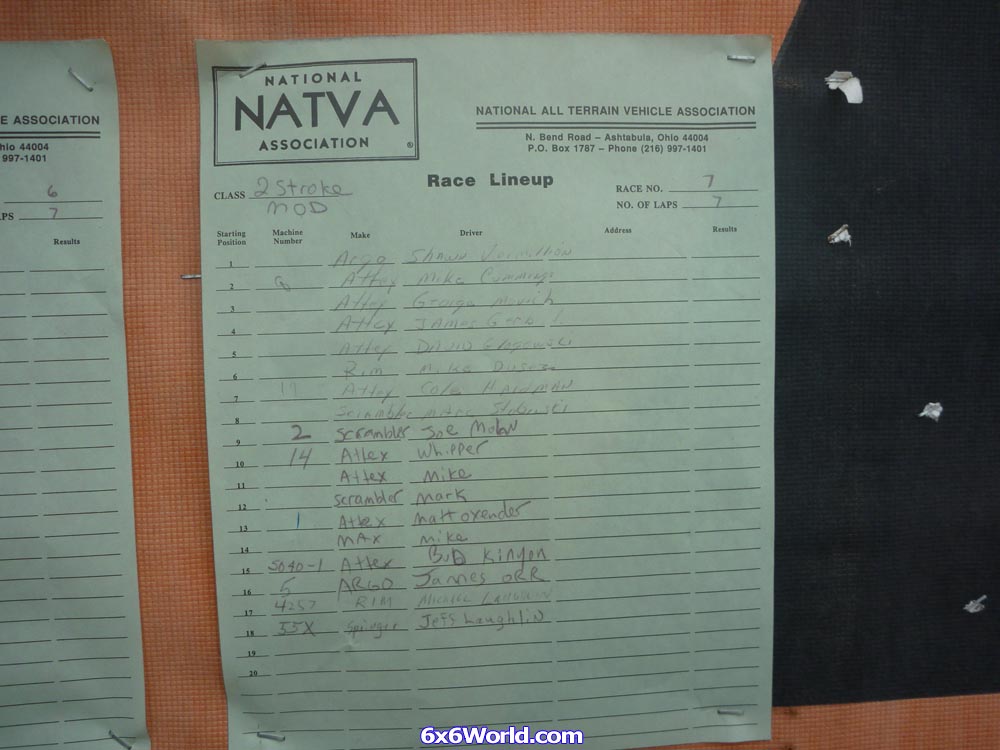 E ASSOCIATION
hio 44004
997-1401
6
LAPS 7
Results
NATIONAL
NATVA
ASSOCIATION ®
NATIONAL ALL TERRAIN VEHICLE ASSOCIATION
N. Bend Road – Ashtabula, Ohio 44004
P.O. Box 1787 – Phone (216) 997-1401
Race Lineup
CLASS 2 Stroke
MOD
RACE NO. 7
NO. OF LAPS 7
Starting Position Machine Number Make Driver Address Results
1 Argo Shawn
2 8 Attex Mike Cummings
3 Attex George
4 Attex James
5 Attex David
6 Rim Mike
7 Attex Cole Hardman
8 Scrambler Marc
9 2 Scrambler Joe
10 14 Attex Whipper
11 Attex Mike
12 scrambler Mark
13 1 Attex Matt oxender
14 MAX Mike
15 5040-1 Attex BuD Kinyon
16 5 ARGO James ORR
17 4257 RIM Michele
18 55X Jeff Laughlin
19
20
6x6World.com